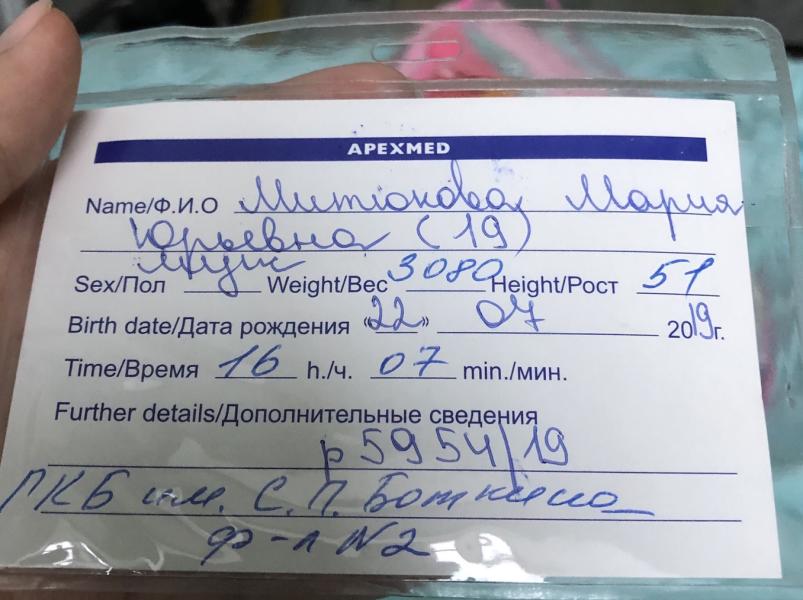 APEXMED
Name/Ф.И.О Митюкова Мария
Юрьевна (19)
Sex/Пол муж Weight/Вес 3080 Height/Рост 51
Birth date/Дата рождения «22» 07 2019г.
Time/Время 16 h./ч. 07 min./мин.
Further details/Дополнительные сведения
р5954/19
ГКБ им. С.П. Боткина
ф-л N2